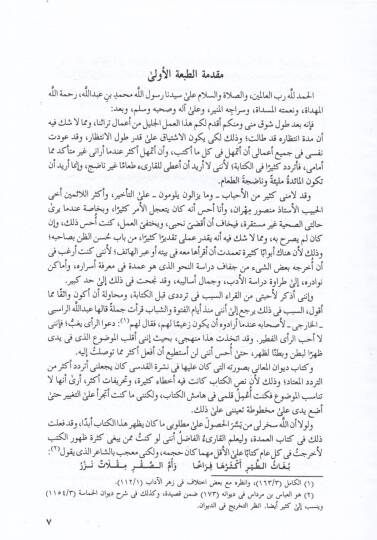 مقدمة الطبعة الأولى
الحمد لله رب العالمين، والصلاة والسلام على سيدنا رسول الله محمد بن عبدالله، رحمة الله
المهداة، ونعمته المسداة، وسراجه المنير، وعلى آله وصحبه وسلم، وبعد:
فإنه بعد طول شوق منى ومنكم أقدم لكم هذا العمل الجليل من أعمال تراثنا، ومما لا شك فيه
أن مدة انتظاره قد طالت؛ وذلك لكى يكون الاشتياق على قدر طول الانتظار، وقد عودت
نفسى فى جميع أعمالى أن أتمهل فى كل ما أكتب، وأن أتمهل أكثر عندما أرانى غير متأكد مما
أمامى، فأتردد كثيرًا فى الكتابة؛ لأننى لا أريد أن أعطى للقارىء طعامًا غير ناضج، وإنما أريد أن
تكون المائدة مليئة وناضجة الطعام.
وقد لامنى كثير من الأحباب ـ وما يزالون يلومون ـ على التأخير، وأكثر اللائمين أخى
الحبيب الأستاذ منصور مهران، وأنا أحس أنه كان يتعجل الأمر كثيرًا، وبخاصة عندما يرى
حالتى الصحية غير مستقرة، فيخاف أن أقضىَ نحبى، ويختفىَ العمل، كنت أُحس ذلك، وإن
كان لم يصرح به، ومما لا شك فيه أنه يقدر عملى تقديرًا كثيرًا، من باب حُسن الظن بصاحبه؛
وذلك لأن هناك أبوابًا كثيرة تعمدت أن أقرأها معه فى بيته أو عبر الهاتف؛ لأننى كنت أرغب فى
أن أُخرجه بعض الشىء من جفاف دراسة النحو الذى هو عمدة فى معرفة أسراره، وأماكن
نوادره، إلى طراوة دراسة الأدب، وجمال أساليبه، وقد نجحت فى ذلك إلى حد كبير.
وإننى أذكر لأحبتى من القراء السبب فى ترددى قبل الكتابة، ومحاولة أن أكون واثقًا مما
أقول، السبب فى ذلك يرجع إلى أننى منذ أيام الفتوة والشباب قرأت جملةً قالها عبدالله الراسبى
ـ الخارجى ـ لأصحابه عندما أرادوه أن يكون زعيمًا لهم، فقال لهم(١): دعوا الرأى يغبُّ؛ فإننى
لا أحب الرأى الفطير. وقد اتخذت هذا منهجى، بحيث إننى أقلب الموضوع الذى فى يدى
ظهرًا لبطن وبطنًا لظهر، حتى أُحس أننى لن أستطيع أن أفعل أكثر مما توصلتُ إليه.
وكتاب ديوان المعانى بصورته التى كان عليها فى نشرة القدسى كان يجعلنى أتردد أكثر من
التردد المعتاد؛ وذلك لأن نص الكتاب كانت فيه أخطاء كثيرة، وتحريفات أكثر، أرى أنها لا
تناسب الموضوع فكنت أُعْمِلُ قلمى فى هامش الكتاب، ولكنى ما كنت أتجرأ على التغيير حتى
أضع يدى على مخطوطة تعيننى على ذلك.
ولولا أن الله سخر لى من يَسَّرَ الحصولَ على مطلوبى ما كان يظهر هذا الكتاب أبدًا، وقد فعلت
ذلك فى كتاب العمدة، وليعلم القارىءُ الفاضلُ أننى لو كنتُ ممن يبغى كثرة ظهور الكتب
لأخرجتُ فى كل عام كتابًا على الأقل مهما كان حجمه، ولكنى معجب بالشاعر الذى يقول(٢):
بُغَاثُ الطَّيْرِ أَكْثَرُهَا فِرَاخًا وَأُمُّ الصَّقْرِ مِقْلَاتٌ نَزُورُ
(١) الكامل (١٢٣/٣)، وانظره مع بعض اختلاف فى زهر الآداب (١١٢/١).
(٢) هو العباس بن مرداس فى ديوانه (١٧٣) ضمن قصيدة، وكذلك فى شرح ديوان الحماسة (١١٥٤/٣)
وينسب إلى كثير أيضا. انظر التخريج فى الديوان.
٧